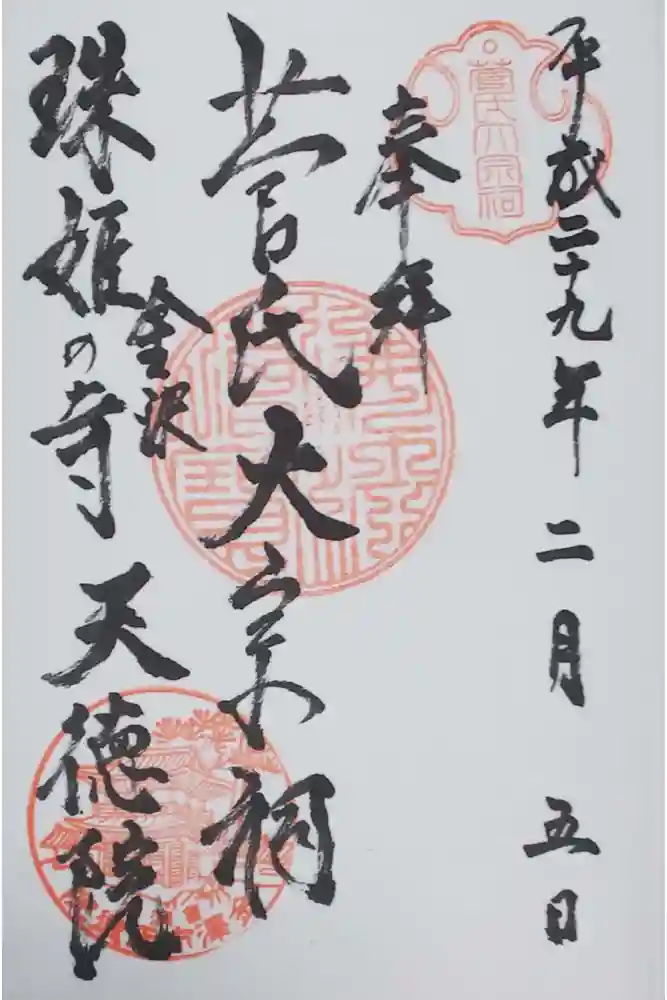 平成二十九年 二月 五日
奉拝
菅氏大宗祠
菅氏大宗祠
金沢
珠姫の寺 天徳院